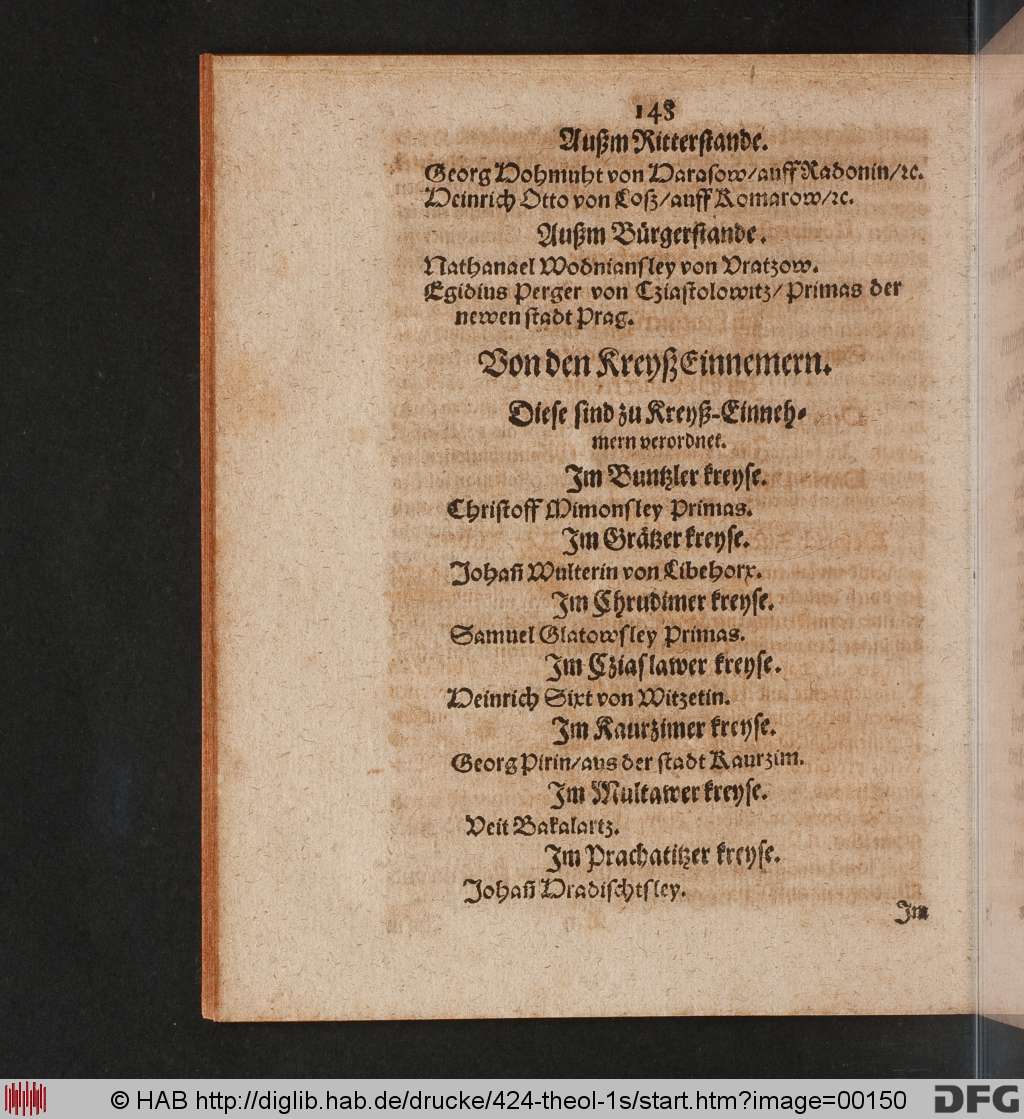 148
Außm Ritterstande.
Georg Hohmuht von Harasow/auff Radonin/ꝛc.
Heinrich Otto von Loß/auff Komarow/ꝛc.
Außm Bürgerstande.
Nathanael Wodniansley von Vratzow.
Egidius Perger von Cziastolowitz/Primas der
newen stadt Prag.
Von den KreyßEinnemern.
Diese sind zu Kreyß-Einneh-
mern verordnet.
Im Buntzler kreyse.
Christoff Mimonsley Primas.
Im Grätzer kreyse.
Johañ Wulterin von Libehorx.
Im Chrudimer kreyse.
Samuel Glatowsley Primas.
Im Cziaslawer kreyse.
Heinrich Sixt von Witzetin.
Im Kaurzimer kreyse.
Georg Pirin/aus der stadt Kaurzim.
Im Multawer kreyse.
Veit Bakalartz.
Im Prachatitzer kreyse.
Johañ Hradischtsley.
Im
© HAB http://diglib.hab.de/drucke/424-theol-1s/start.htm?image=00150
DFG